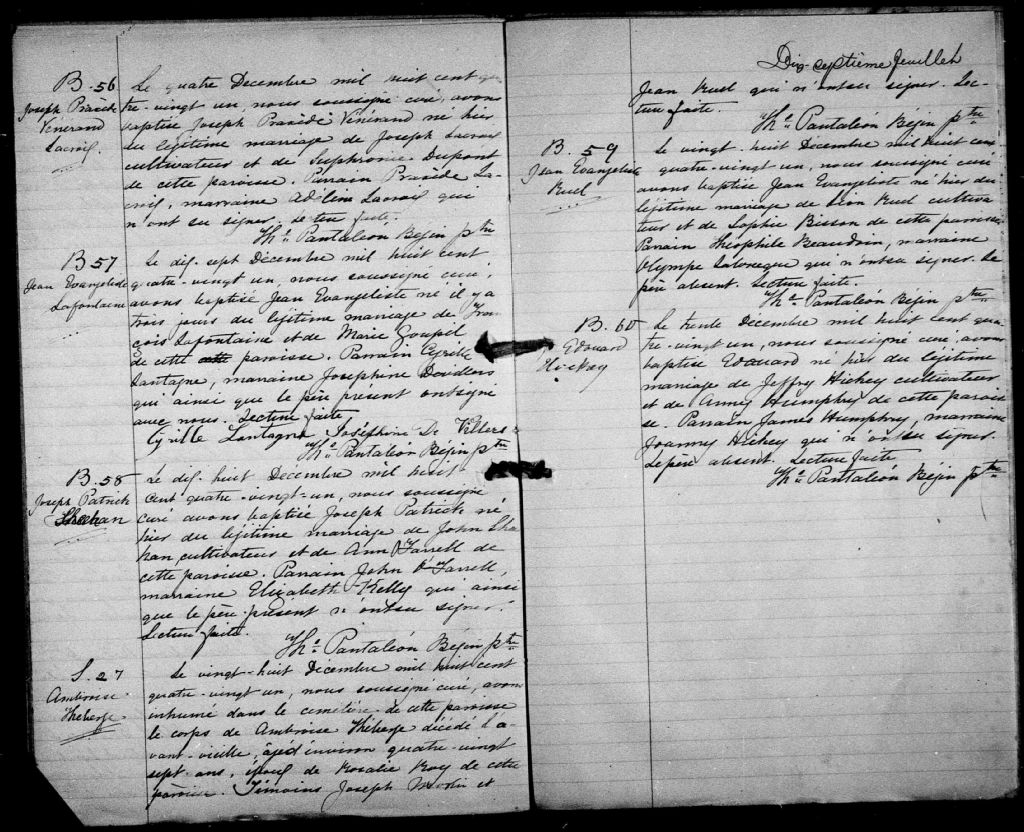 B. 56
Joseph Praxède
Vénérand
Lacroix
Le quatre Decembre mil huit cent qua
tre-vingt un, nous soussigné curé, avons
baptisé Joseph Praxède Vénérand né hier
du légitime marriage de Joseph Lacroix
cultivateur et de Euphromie Dupont
de cette paroisse. Parrain Praxède La-
croix, marraine Adéline Lacroix qui
n'ont su signer. Lecture faite.
Ths. Pantaléon Bégin ptre
B 57
Jean Evangeliste
Lafontaine
Le dix-sept Décembre mil huit cent
quatre-vingt un, nous soussigné curé,
avons baptisé Jean Evangeliste né il y a
trois jours du légitime marriage de Fran
çois Lafontaine et de Marie Goupil
de cette paroisse. Parrain Cyrille
Lantagne, marraine Josephine Devillers
qui ainsi que le père présent ont signé
avec nous. Lecture faite
Cyrille Lantagne Joséphine De Villers
Ths. Pantaléon Bégin ptre
B. 58
Joseph Patrick
Sheehan
Le dix huit Decembre mil huit
cent quatre-vingt-un, nous soussigné
curé avons baptisé Joseph Patrick né
hier du légitime marriage de John Sha
han, cultivateur et de Ann Farrell de
cette paroisse. Parrain John O'Farrell,
marraine Elizabeth Kelly qui ainsi
que le père présent n'ont su signer.
Lecture faite.
Ths. Pantaléon Bégin ptre
S. 27
Ambroise
Theberge
Le vingt-huit Décembre mil huit cent
quatre-vingt un, nous soussigné curé, avons
inhumé dans le cemetière de cette paroisse
le corps de Ambroise Théberge décédé l'a
vant-vieille, âgé d'environ quatre-vingt
sept-ans, époux de Rosalie Roy de cette
paroisse. Témoins Joseph Morin et
Dix-septième feuillet
Jean Ruel qui n'ont su signer. Lec-
ture faite.
Ths. Pantaléon Bégin ptre
B. 59
Jean Evangeliste
Ruel
Le vingt-huit Décembre mil huit cent
quatre-vingt-un, nous soussigné curé
avons baptisé Jean Evangeliste né hier du
légitime mariage de Léon Ruel cultiva
teur et de Sophie Bisson de cette paroisse
Parrain Théophile Beaudoin, marraine
Olympe Labrecque qui n'ont su signer. Le
père absent. Lecture faite.
Ths. Pantaléon Bégin ptre
B. 60
Edouard
Hickey
Le trente Décembre mil huit cent qua
tre-vingt un, nous soussigné curé, avons
baptisé Edouard né hier du légitime
mariage de Jeffry Hickey cultivateur
et de Anney Humphry de cette parois
se. Parrain James Humphry, marraine
Joanny Hickey qui n'ont su signer.
Le père absent. Lecture faite
Ths. Pantaléon Bégin ptre